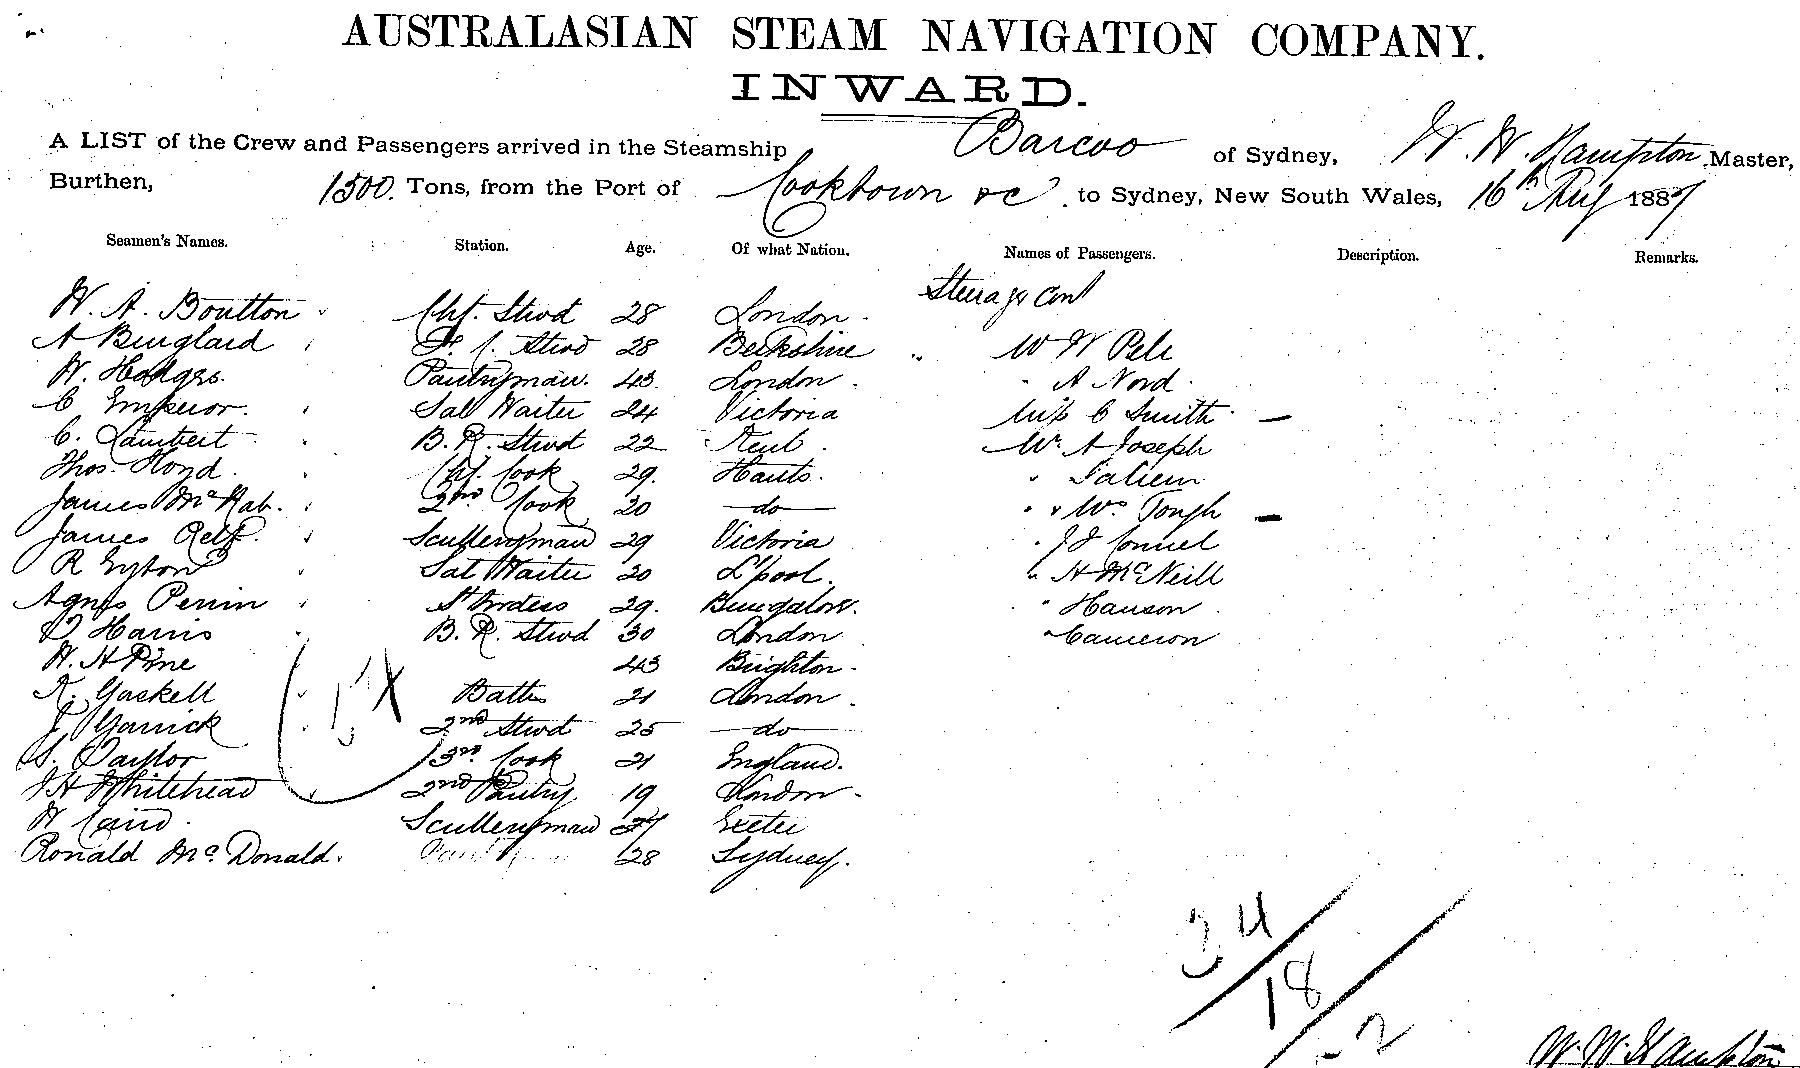 AUSTRALASIAN STEAM NAVIGATION COMPANY.
INWARD.
A LIST of the Crew and Passengers arrived in the Steamship Barcoo of Sydney, W. W. Hampton Master,
Burthen, 1500. Tons, from the Port of Cooktown &c. to Sydney, New South Wales, 16th Aug 1887
Seamen's Names. Station. Age. Of what Nation. Names of Passengers. Description. Remarks.
Steerage Cont
W. A. Boulton Chf. Stwd 28 London
A 28 Berkshire W W
W. Hodges. Pantryman. 43 London A Nord
C Emperor. Sal Waiter 24 Victoria Miss C Smith
C. Lambert B. R. Stwd 22 Kent Mr. A Joseph
Thos. Chf. Cook 29. Hants.
James 2nd Cook 20 do Tough
James Relf. Sculleryman 29 Victoria
R Eyton Sal Waiter 20 L'pool. H McNeill
Agnes Perrin Stwdess 29. Hanson
D Harris B. R. Stwd 30 London Cameron
W. H Pine 43 Brighton.
K. Gaskell 21 London
J. Garrick 2nd Stwd 25 do
S. Taylor 3rd. Cook 21 England.
J H Whitehead 2nd Pantry 19 London
W Caird. Sculleryman Exeter
Ronald McDonald. 28 Sydney.
34
18
2
W. W. Hampton